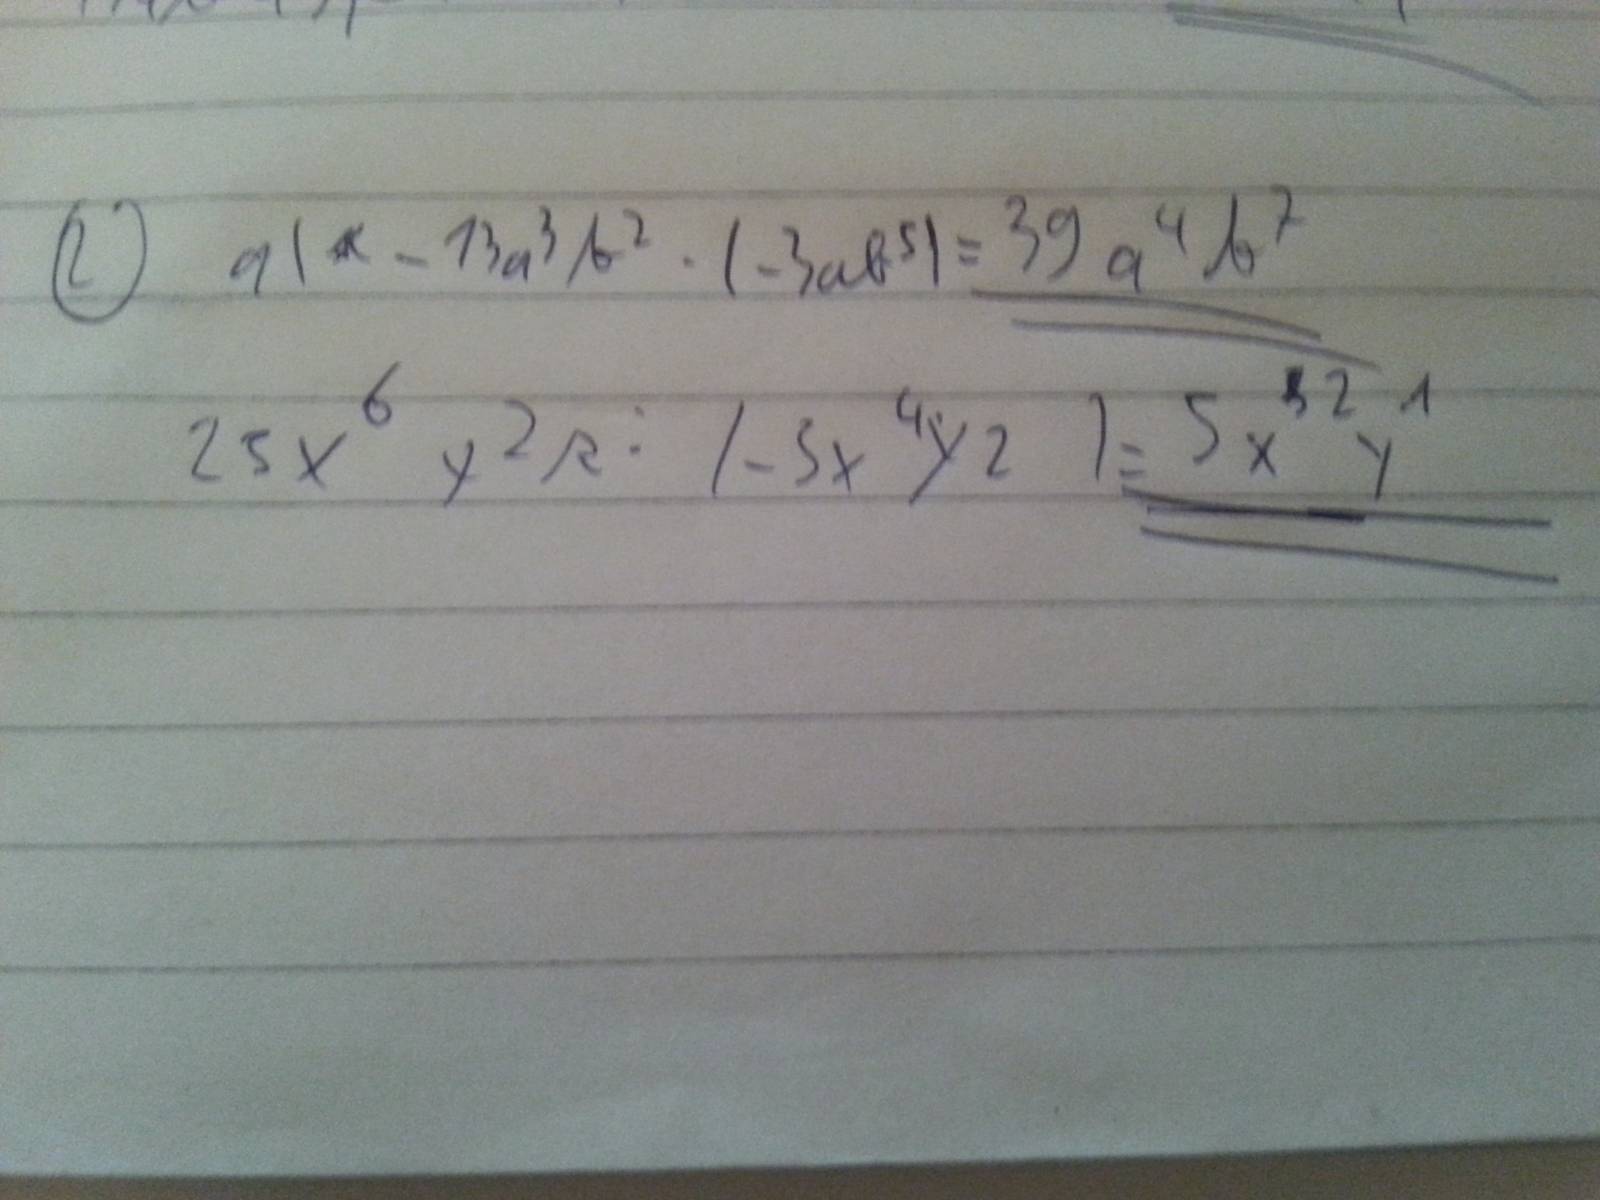 2) a) - 13a³b² · (-3ab⁵) = 39a⁴b⁷
25x⁶ y² z : (-5x⁴yz) = 5x² y¹